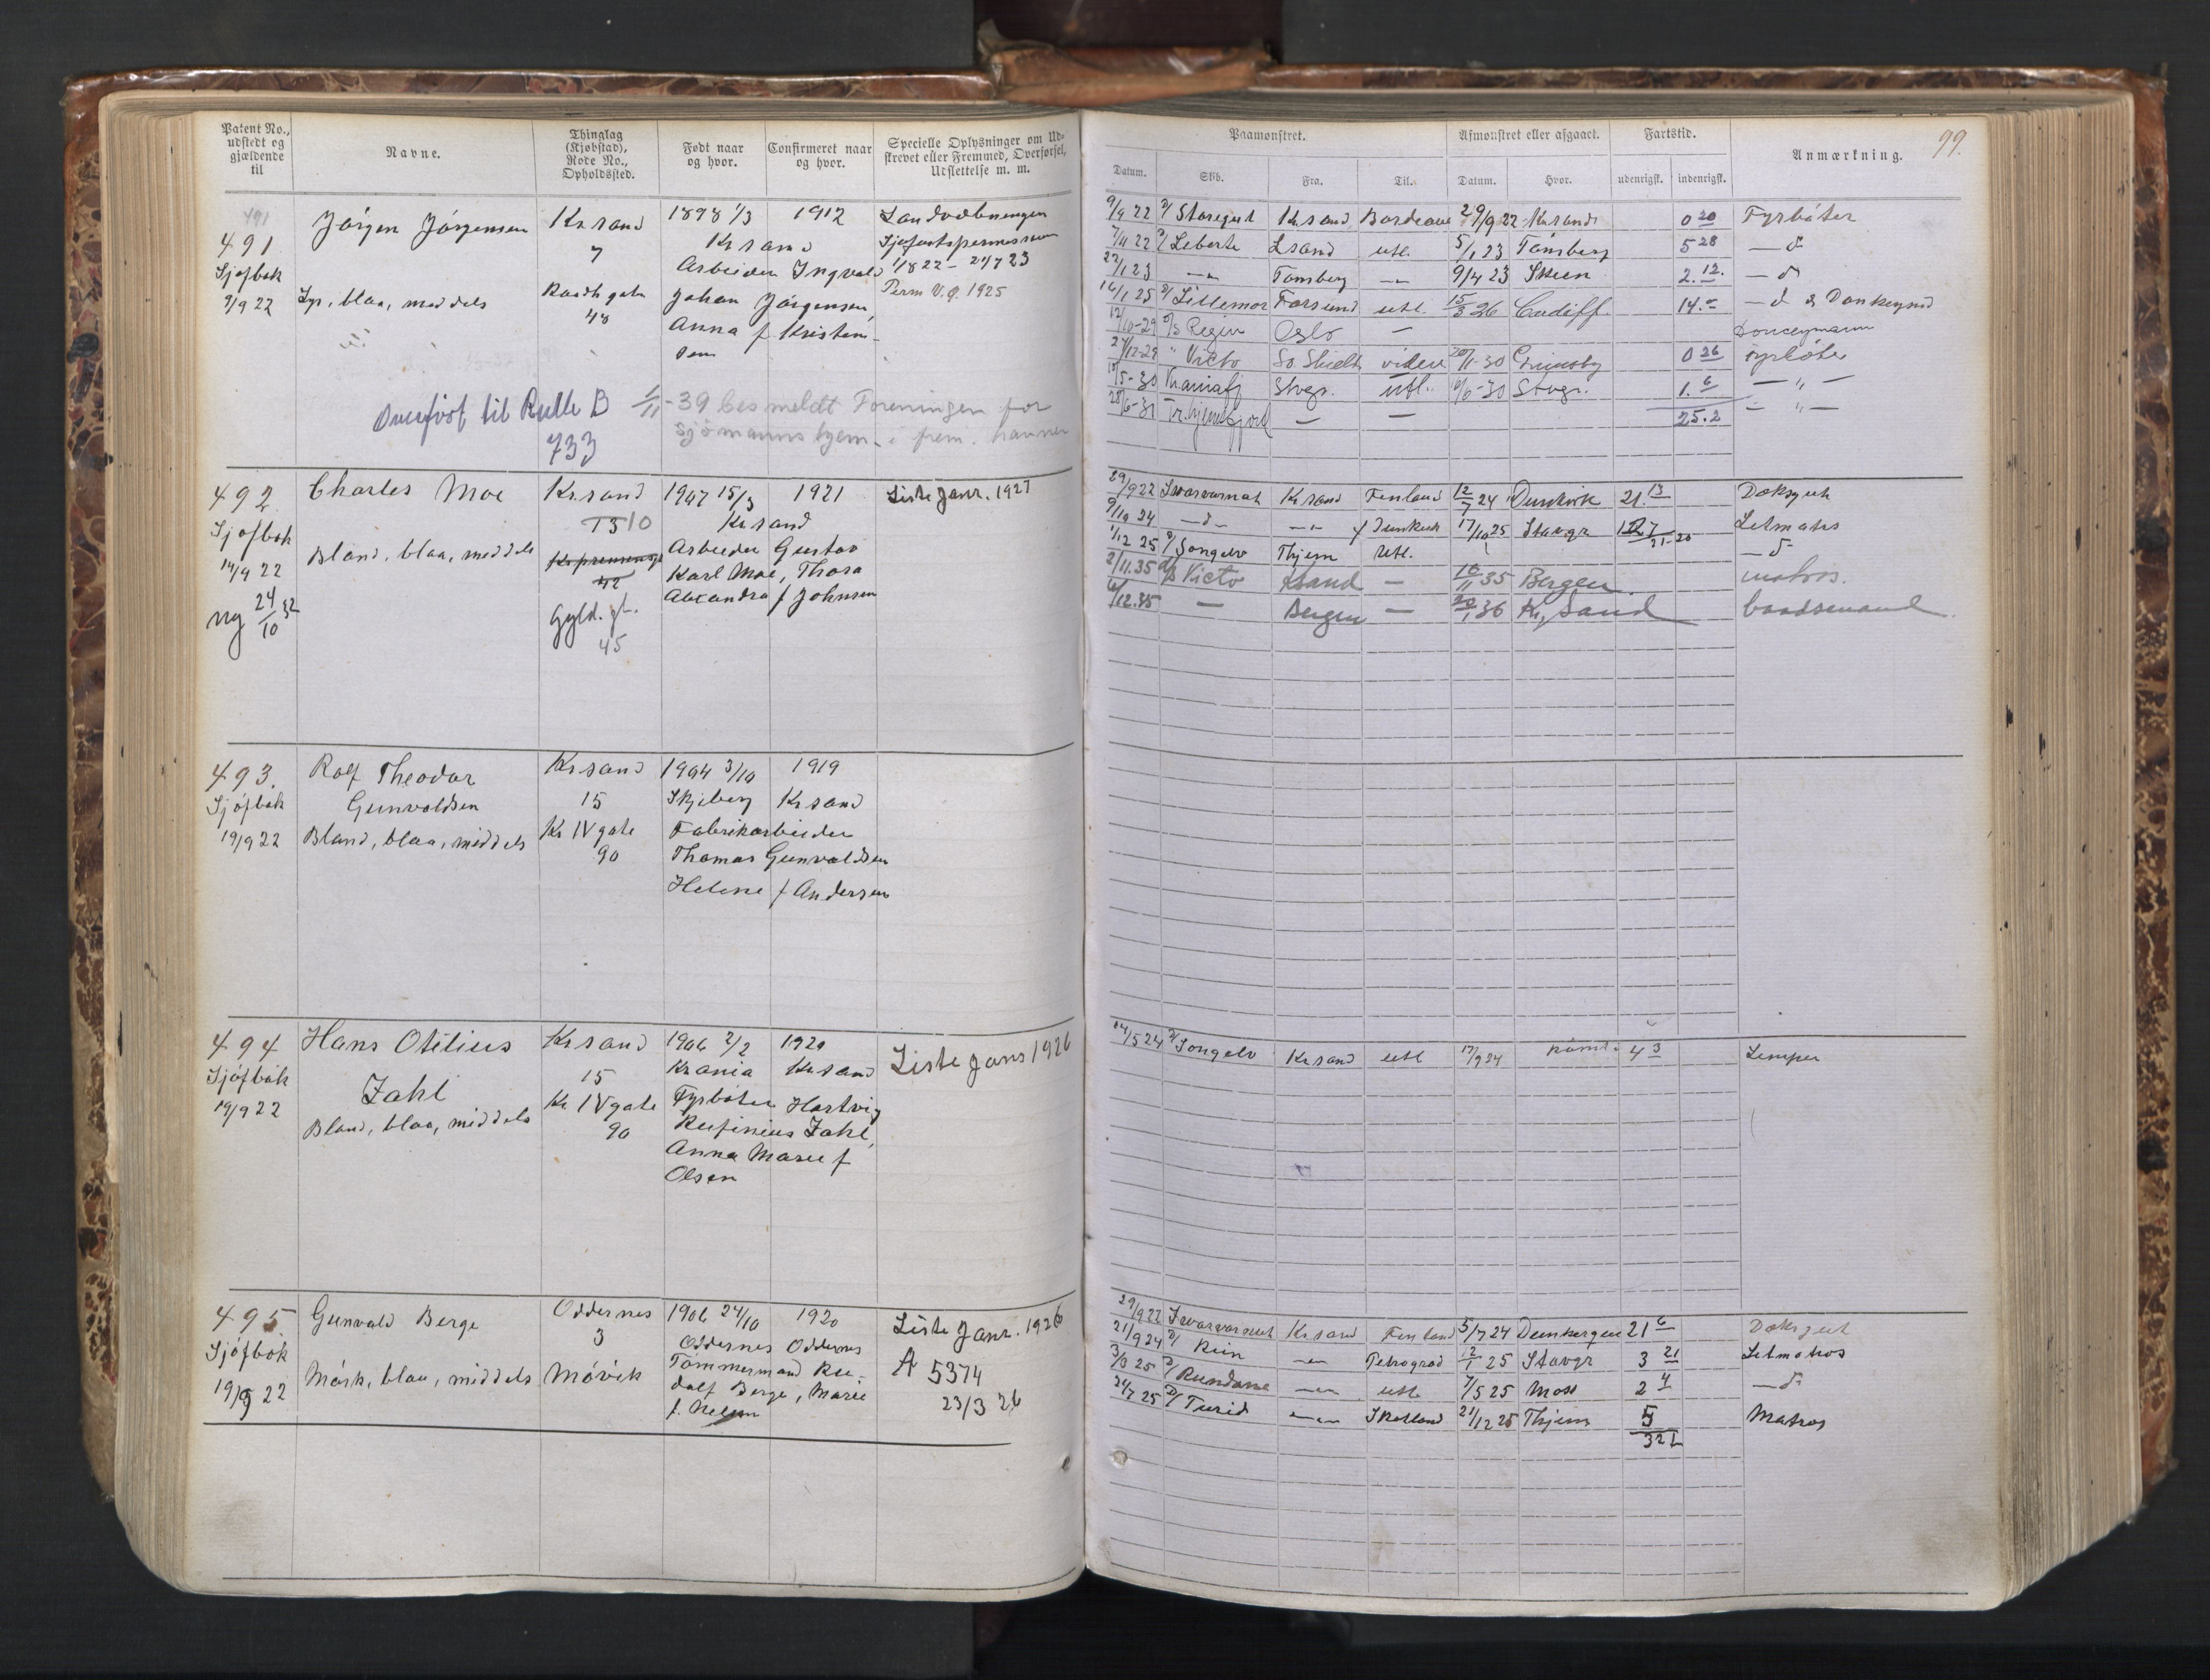 Patent No., udstedt og gjældende til
Navne.
Thinglag (Kjøbstad), Rode No., Opholdssted.
Født naar og hvor.
Confirmeret naar og hvor.
Specielle Oplysninger om Udskrevet eller Fremmed, Overførsel, Udslettelse m. m.
491
491
Sjøfbok
9/9 22
Jörgen Jörgensen
Lys, blaa, meddels
Krsand
7
Raadh gate
48
1898 1/3 1912
Krsand
Arbeider Ingvald
Johan Jörgensen,
Anna f Kristen-
sen
Landvæbningen
1/8 22 – 24/7 23
Perm V. G. 1925
Overført til Rulle B
733
1/11 - 39 bes meldt Foreningen for
sjømannshjem i frem. havner
492
Sjøfbok
14/9 22
ny 24/10 32
Charles Moe
Bland, blaa, meddels
Krsand
10
42
Gyld. gt.
45
1907 15/3 1921
Krsand
Arbeider Gustav
Karl Moe, Thora
Alexandra f Johnsen
Liste Janr. 1927
493.
Sjøfbok
19/9 22
Rolf Theodor
Gunvaldsen
Bland, blaa, middels
Krsand
15
Kr IV gate
90
1904 3/10 1919
Skjeberg Krsand
Fabrikarbeider
Thomas Gunvaldsen
Helene f Andersen
494
Sjøfbok
19/9 22
Hans Otilius
Zahl
Bland, blaa, middels
Krsand
15
Kr IV gate
90
1906 2/2 1920
Krania Krsand
Fyrböter Hartvig
Rufinius Zahl,
Anna Marie f
Olsen
Liste Janr 1926
495
Sjøfbok
19/9 22
Gunvald Berge
Mörk, blaa, middels
Oddernes
3
Mövik
1906 24/10 1920
Oddernes Oddernes
Tömmermand Ru-
dolf Berge, Marie
f. Nelsen
Liste Janr. 1926
A 5374
23/3 26
99.
Paamønstret.
Afmønstret eller afgaaet.
Fartstid.
Anmærkning.
Datum. Skib. Fra. Til. Datum. Hvor. udenrigsk. indenrigsk.
9/9 22 D/ Storegut Krsand Bordeaux 29/9 22 Krsand 0 20 Fyrböter
7/11 22 D/ Leberte Lsand utl. 5/1 23 Tönsberg 5 28 — d
22/1 23 — „ — Tönsberg — „ — 9/4 23 Skien 2. 12. — d
16/1 25 D/ Lillemor Farsund utl. 15/3 26 Cardiff 14. - — d & Donkeymd
12/10-29 D/S Regin Oslo — Donkeymann
27/12-29 " Victo So. Shields viden 20/1-30 Grimsby 0 26 fyrböter
15/5-30 Kraniafj Stvgr. utl. 6/6-30 Stvgr. 1. 6 — „ —
28/6-30 Tr.hjemsfjord — — 25.2 — „ —
29/9 22 Swarvarnut Krsand Finland 12/7 24 Dunkirk 21. 13 Dæksgut
9/10 24 — d — — „ — f Dunkirk 17/10 25 Stavgr Letmatros
1/12 25 D/ Songelv Thjem Utl. — d
2/11.35 D/S Victo Ksand — 16/11 35 Bergen matros.
6/12.35 — Bergen — 20/1 36 Kr,Sand baadsmand.
14/5 24 D/ Songelv Krsand utl 17/9 24 4 3 Lemper
29/9 22 Swarvarnut Krsand Finland 5/7 24 Dunkerque 21 6 Dæksgut
21/9 24 D/ Rein — „ — Petrograd 12/1 25 Stavgr 3 21 Letmatros
3/3 25 D/ Rundane — „ — utl 7/5 25 Moss 2 4 — d
24/7 25 D/ Turid — „ — Skotland 21/12 25 Thjem 5 Matros
32 1